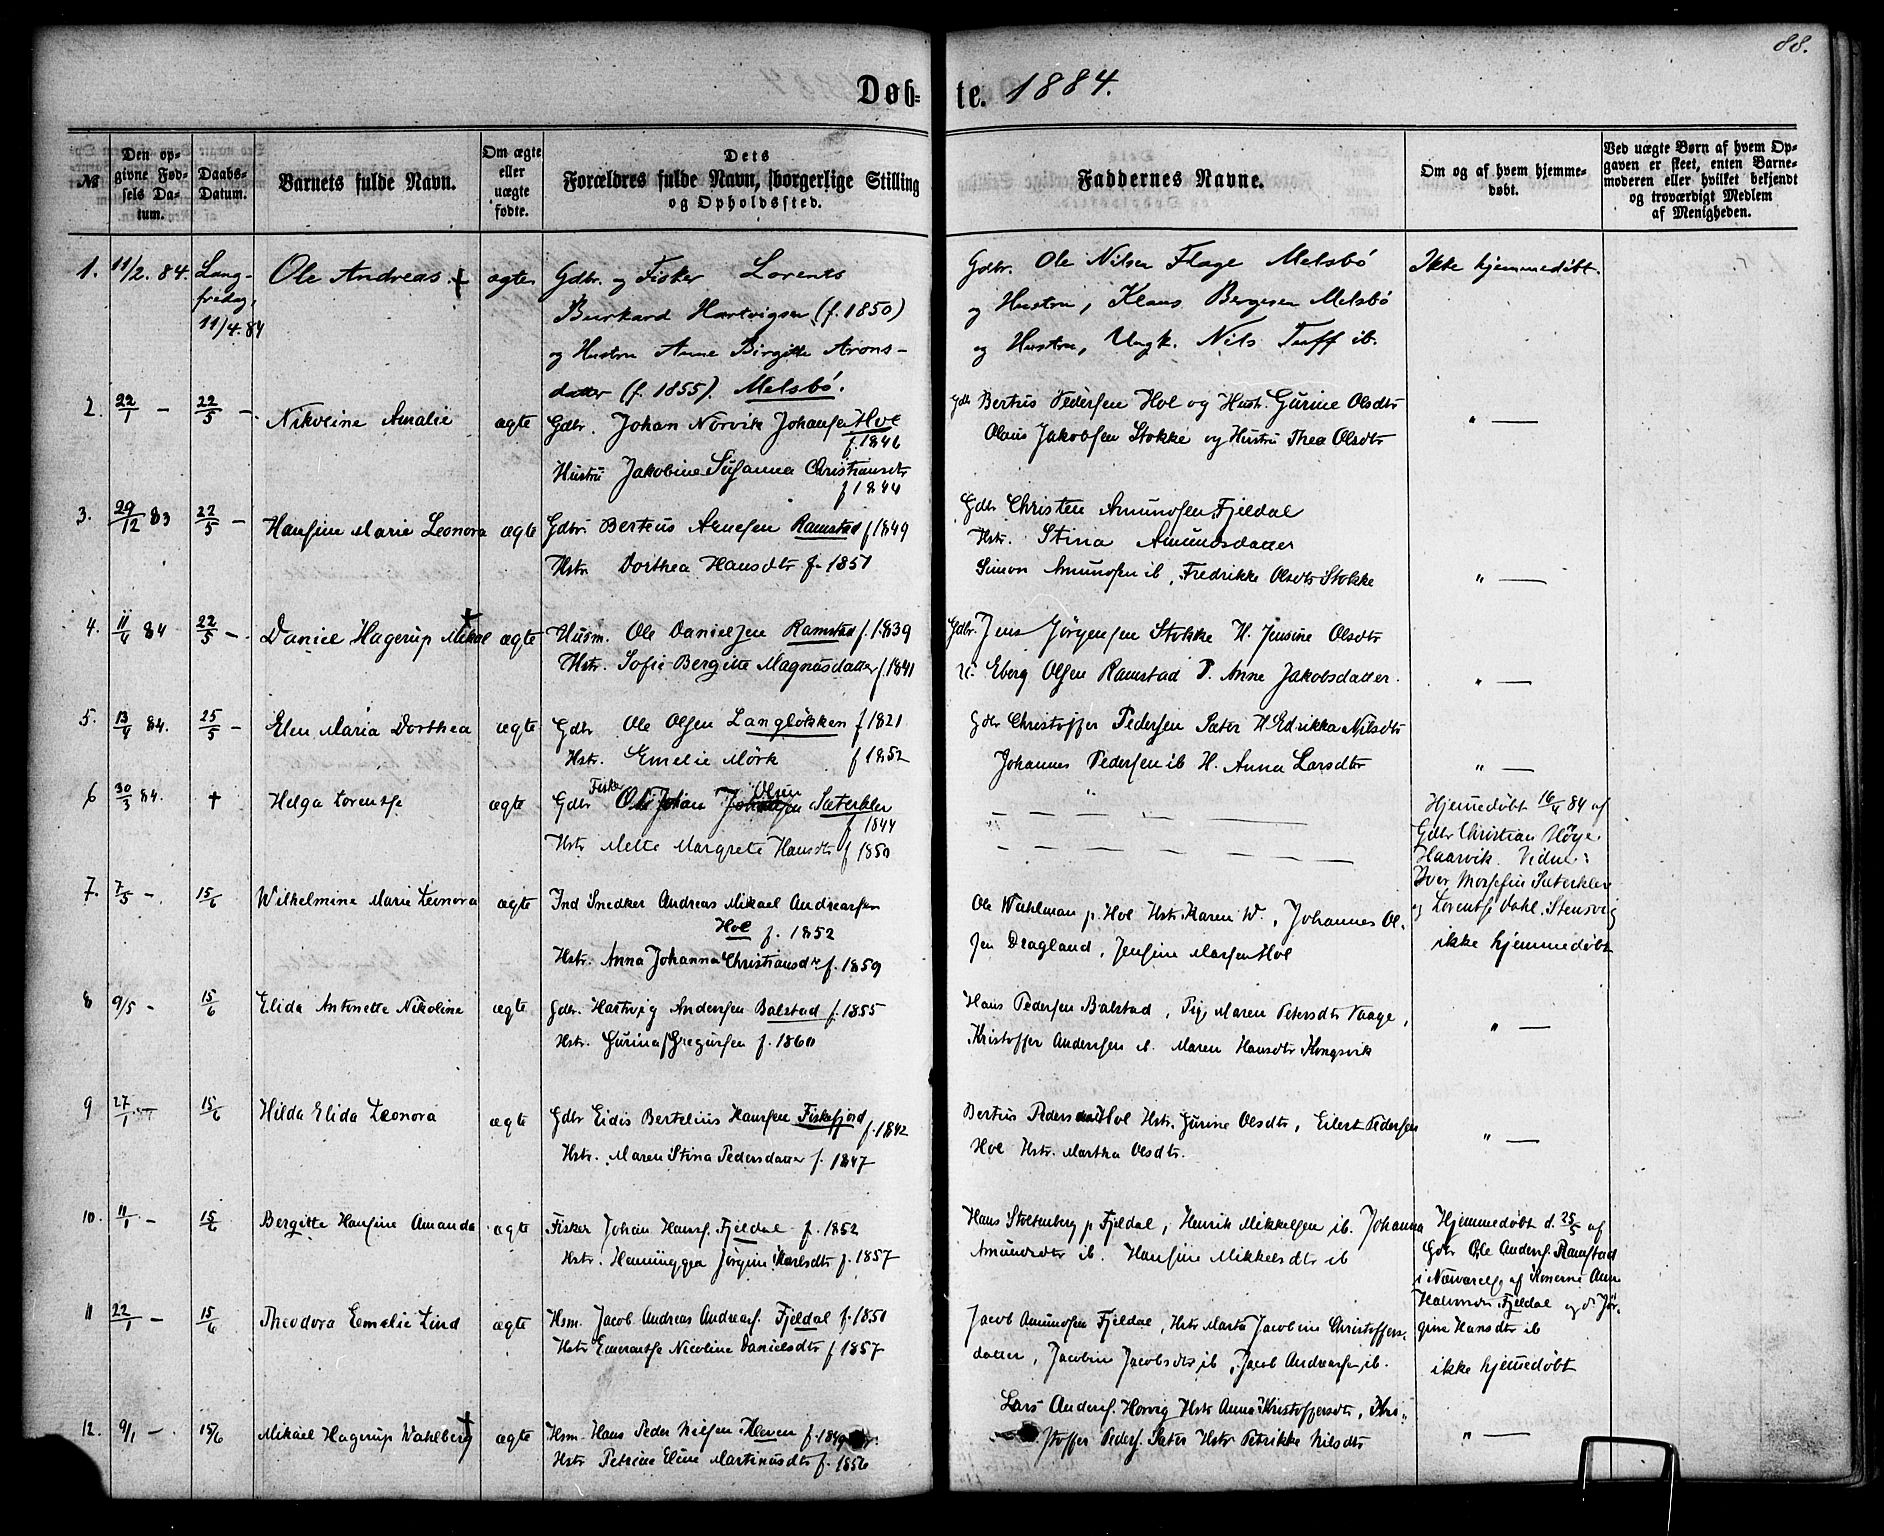 88.
Døb- te. 1884.
№
Den opgivne Fødsels Datum.
Daabs-Datum.
Barnets fulde Navn.
Om ægte eller uægte fødte.
Dets Forældres fulde Navn, borgerlige Stilling og Opholdssted.
Faddernes Navne.
Om og af hvem hjemmedøbt.
Ved uægte Børn af hvem Opgaven er skeet, enten Barnemoderen eller hvilket bekjendt og troværdigt Medlem af Menigheden.
1. 11/2. 84. Lang-fredag, 11/4. 84 Ole Andreas + ægte
Gdbr. og Fisker Lorents
Burkard Hartvigsen (f. 1850)
og Hustru Anne Birgitte Arons-
datter (f. 1855). Melsbö.
Gdbr. Ole Nilsen Flage Melsbö
og Hustru, Klaus Bergesen Melsbö
og Hustru, Ungk. Nils Tuff ib.
Ikke hjemmedøbt.
2. 22/1 — 22/5 — Nikoline Amalie ægte
Gdbr. Johan Norvik Johansen Hol
f. 1846
Hustru Jakobine Susanna Christiansdtr
f 1844
Gdbr Bertus Pedersen Hol og Hustr. Gurine Olsdtr
Olaus Jakobsen Stokke og Hustru Thea Olsdtr
" —
3. 29/12 83 22/5 — Hansine Marie Leonora ægte
Gdbr. Berteus Arnesen Ramstad f 1849
Hstr Dorthea Hansdtr f. 1851
Gdbr Christen Amundsen Fjeldal
Hstr. Stina Amundsdatter
Simon Amundsen ib, Fredrikke Olsdtr Stokke
" —
4. 11/4 84 22/5 — Daniel Hagerup Mikal + ægte
Husm. Ole Danielsen Ramstad f. 1839
Hstr. Sofie Bergitte Magnusdatter f. 1841
Gdbr. Jens Jørgensen Stokke H. Jensine Olsdtr
U. Eberg Olsen Ramstad P. Anne Jakobsdatter.
" —
5. 13/4 84. 25/5 — Elen Maria Dorthea ægte
Gdbr Ole Olsen Langløkken f 1821
Hstr. Emelie Mörk f 1852
Gdbr Christoffer Pedersen Sæter H Edrikka Nilsdtr
Johannes Pedersen ib H. Anna Larsdtr
" —
6 30/3 84. + Helga Lorentse ægte
Fisker Olsen
Gdbr Ole Johan Johansen Sæterkler
f 1844
Hstr Mette Margrete Hansdtr f 1850
Hjemmedøbt 16/4 84 af
Gdbr Christian Høye
Haarvik. Vidne:
Iver Mosesen Sæterkler
og Lorentse Dahl, Stensvig
7. 7/5 — 15/6 Wilhelmine Marie Leonora ægte
Ind Snedker Andreas Mikael Andreassen
Hol f. 1852
Hstr. Anna Johanna Christiansdtr f. 1859
Ole Wahlman p. Hol Hstr. Karen W., Johannes Ol-
sen Dragland, Jensine Marsen Hol
ikke hjemmedøbt
8 9/5 — 15/6 Elida Antonette Nikoline ægte
Gdbr. Hartvig Andersen Balstad f. 1855
Hstr. Gurina Gregusen f. 1860
Hans Pedersen Balstad, Pig. Maren Petersdtr Vaage,
Kristoffer Andersen ib. Maren Hansdtr Kongsvik
" —
9 27/1 — 15/6 Hilda Elida Leonora ægte
Gdbr Eidis Bertelius Hansen Fiskefjord
f. 1842
Hstr. Maren Stina Pedersdatter f. 1847
Bertus Pedersen Hol Hstr. Gurine Olsdtr, Eilert Pedersen
Hol Hstr. Martha Olsdtr.
" —
10. 11/1 — 15/6 Bergitte Hansine Amanda ægte
Fisker Johan Hans. Fjeldal f. 1852
Hstr. Henninggea Jørgine Karlsdtr f. 1857
Hans Stoltenberg p Fjeldal, Henrik Mikkelsen ib. Johanna
Amundsdtr ib. Hansine Mikkelsdtr ib
Hjemmedøbt d. 25/5 af
Gdbr Ole Anders. Ramstad
i Nærværelse af Konerne Ann
Halvorsdtr Fjeldal og Jør-
gine Hansdtr ib
11 22/1 — 15/6 Theodora Emelie Lind ægte
Hsm. Jacob Andreas Andreas. Fjeldal f. 1850
Hstr Emerentse Nicoline Danielsdtr f 1857
Jacob Amundsen Fjeldal, Hstr Marta Jacobine Christoffers-
datter, Jacobin Jacobsdtr ib, Jacob Andreassen ib.
ikke hjemmedøbt
12. 9/1 — 15/6 Mikael Hagerup Wahlberg + ægte
Hsm. Hans Peder Nilsen Kleven
Hstr Petrine Eline Martinusdtr f. 1856
Lars Anders. Horvig Hstr Anna Kristoffersdtr, Kri-
stoffer Peders. Sæter Hstr Petrikke Nilsdtr
" —